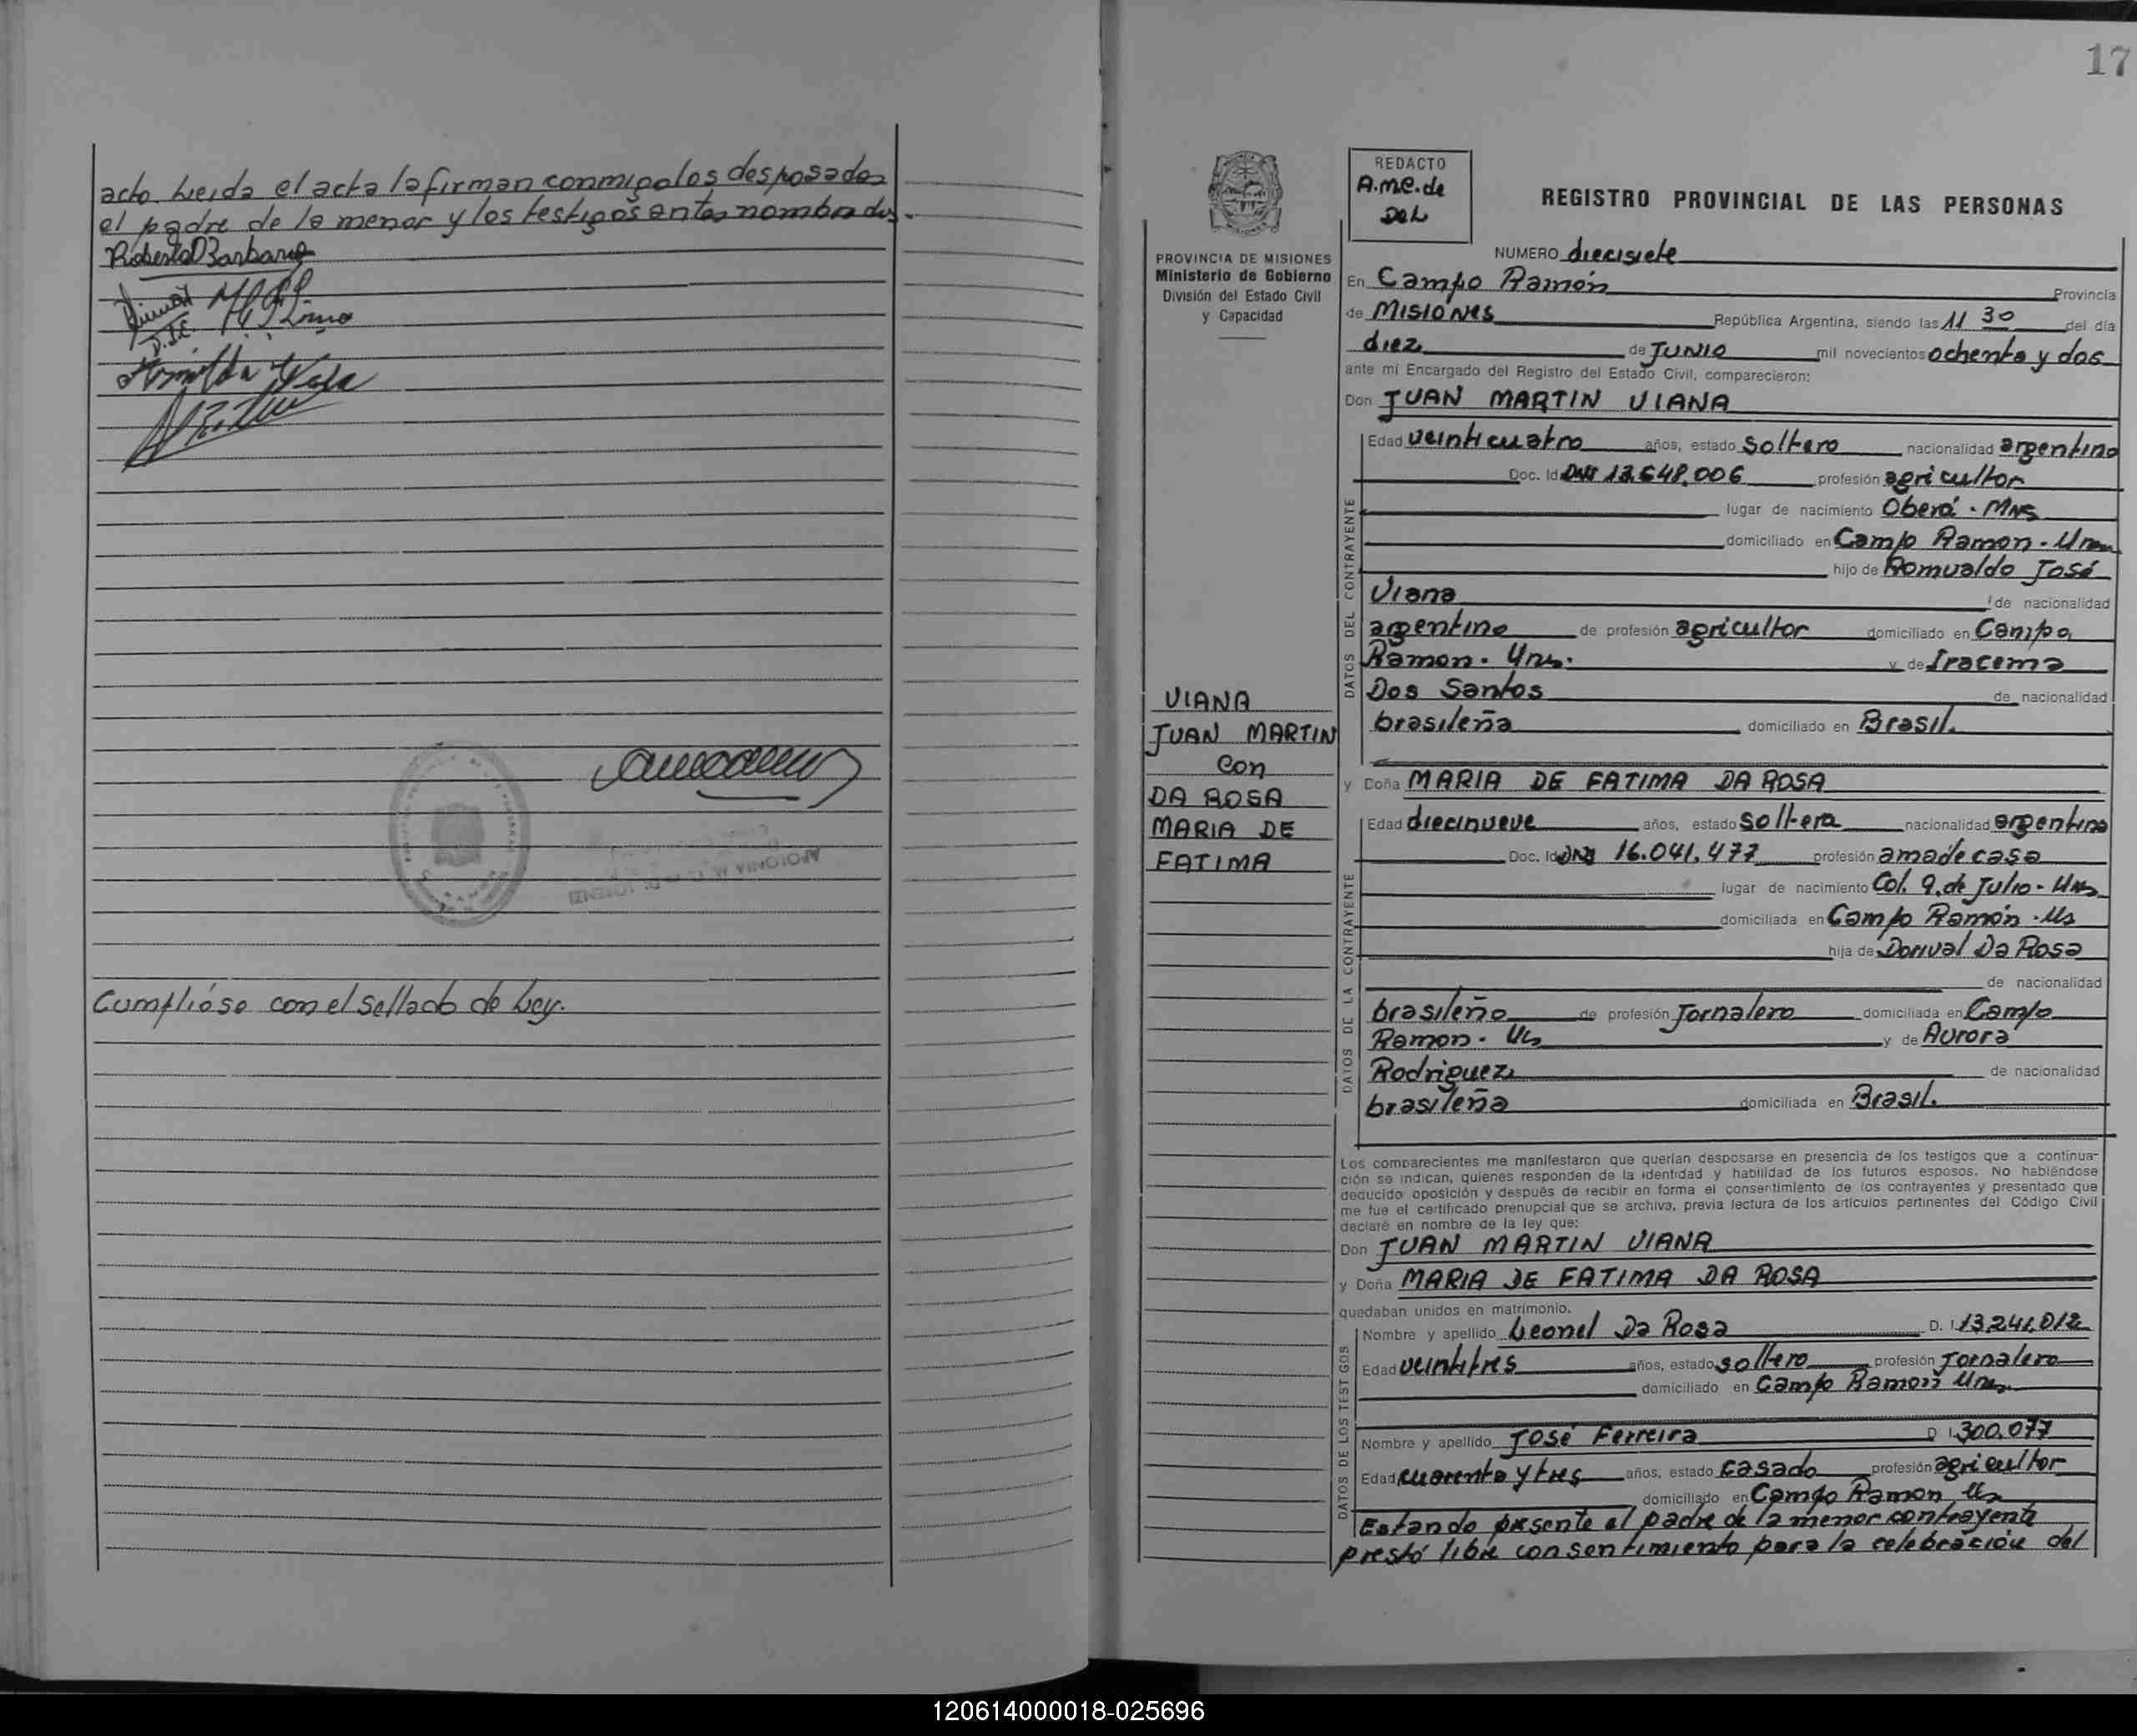 acto. Leida el acta la firman conmigo los desposados
el padre de la menor y los testigos antes nombrados.
Cumplióse con el sellado de Ley.
17
REDACTO
A.m.c.de
DeL
REGISTRO PROVINCIAL DE LAS PERSONAS
PROVINCIA DE MISIONES
Ministerio de Gobierno
División del Estado Civil
y Capacidad
NUMERO diecisiete
En Campo Ramón Provincia
de Misiones República Argentina, siendo las 11 30 del día
diez de JUNIO mil novecientos ochenta y dos
ante mí Encargado del Registro del Estado Civil, comparecieron:
Don JUAN MARTIN VIANA
Edad veinticuatro años, estado soltero nacionalidad argentino
Doc. Id DNI 13.648.006 profesión agricultor
lugar de nacimiento Oberá - Mns
domiciliado en Campo Ramon -
hijo de Romualdo José
Viana de nacionalidad
argentino de profesión agricultor domiciliado en Campo
Ramon. y de Iracema
Dos Santos de nacionalidad
brasileña domiciliado en Brasil.
DATOS DEL CONTRAYENTE
VIANA
JUAN MARTIN
con
DA ROSA
MARIA DE
FATIMA
y Doña MARIA DE FATIMA DA ROSA
Edad diecinueve años, estado soltera nacionalidad argentina
Doc. Id DNI 16.041.477 profesión ama de casa
lugar de nacimiento Col. 9. de Julio -
domiciliada en Campo Ramón -
hija de Dorival Da Rosa
de nacionalidad
brasileño de profesión Jornalero domiciliada en Campo
Ramon - y de Aurora
Rodriguez de nacionalidad
brasileña domiciliada en Brasil.
DATOS DE LA CONTRAYENTE
Los comparecientes me manifestaron que querían desposarse en presencia de los testigos que a continua-
ción se indican, quienes responden de la identidad y habilidad de los futuros esposos. No habiéndose
deducido oposición y después de recibir en forma el consentimiento de los contrayentes y presentado que
me fue el certificado prenupcial que se archiva, previa lectura de los artículos pertinentes del Código Civil
declaré en nombre de la ley que:
Don JUAN MARTIN VIANA
y Doña MARIA DE FATIMA DA ROSA
quedaban unidos en matrimonio.
Nombre y apellido Leonel Da Rosa D. I. 13.241.012
Edad veintitres años, estado soltero profesión Jornalero
domiciliado en Campo Ramon
Nombre y apellido José Ferreira D. I. 300.077
Edad cuarenta y tres años, estado casado profesión agricultor
domiciliado en Campo Ramon
DATOS DE LOS TESTIGOS
Estando presente el padre de la menor contrayente
prestó libre consentimiento para la celebración del
120614000018-025696